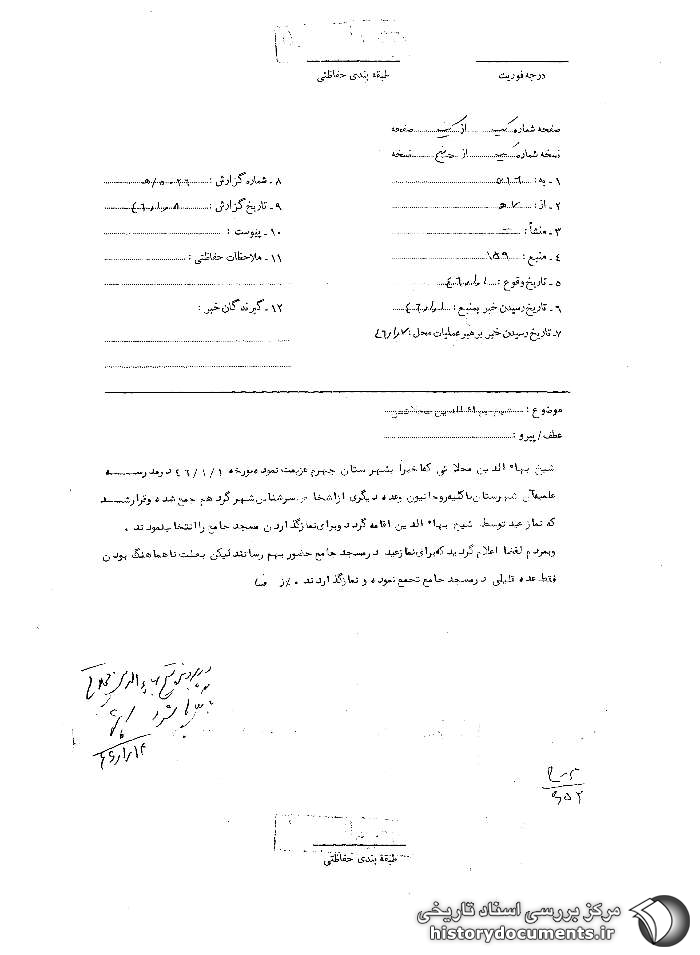 درجه فوریت
طبقه بندی حفاظتی
صفحه شماره یک از یک صفحه
نسخه شماره از نسخه
۱ـ به : ۵۱۶
۲ـ از : ۵۷
۳ـ منشأ :
۴ـ منبع : ۱۵۹
۵ـ تاریخ وقوع : ۴۶/۱/۱
۶ـ تاریخ رسیدن خبر بمنبع : ۴۶/۱/۱
۷ـ تاریخ رسیدن خبر برهبر عملیات محل : ۴۶/۱/۷
۸ـ شماره گزارش :
۹ـ تاریخ گزارش : ۴۶/۱/۸
۱۰ـ پیوست :
۱۱ـ ملاحظات حفاظتی :
۱۲ـ گیرندگان خبر :
موضوع : شیخ بهاءالدین محلاتی
عطف/پیرو :
شیخ بهاء الدین محلاتی که اخیراً بشهرستان جهرم عزیمت نموده مورخه ۴۶/۱/۱ در مدرسه
علمیه آن شهرستان با کلیه روحانیون وعده دیگری از اشخاص سرشناس شهر گرد هم جمع شده و قرار شد
که نماز عید توسط شیخ بهاء الدین اقامه گردد و برای نمازگذاردن مسجد جامع را انتخاب نمودند .
و بمردم لفظا اعلام گردید که برای نماز عید در مسجد جامع حضور بهم رسانند لیکن بعلت ناهماهنگ بودن
فقط عده قلیلی در مسجد جامع تجمع نموده و نماز گذاردند .
در پرونده شیخ بهاءالدین محلاتی
شود
۴۶/۱/۱۴
۹۵۲
طبقه بندی حفاظتی
مرکز بررسی اسناد تاریخی
historydocuments.ir